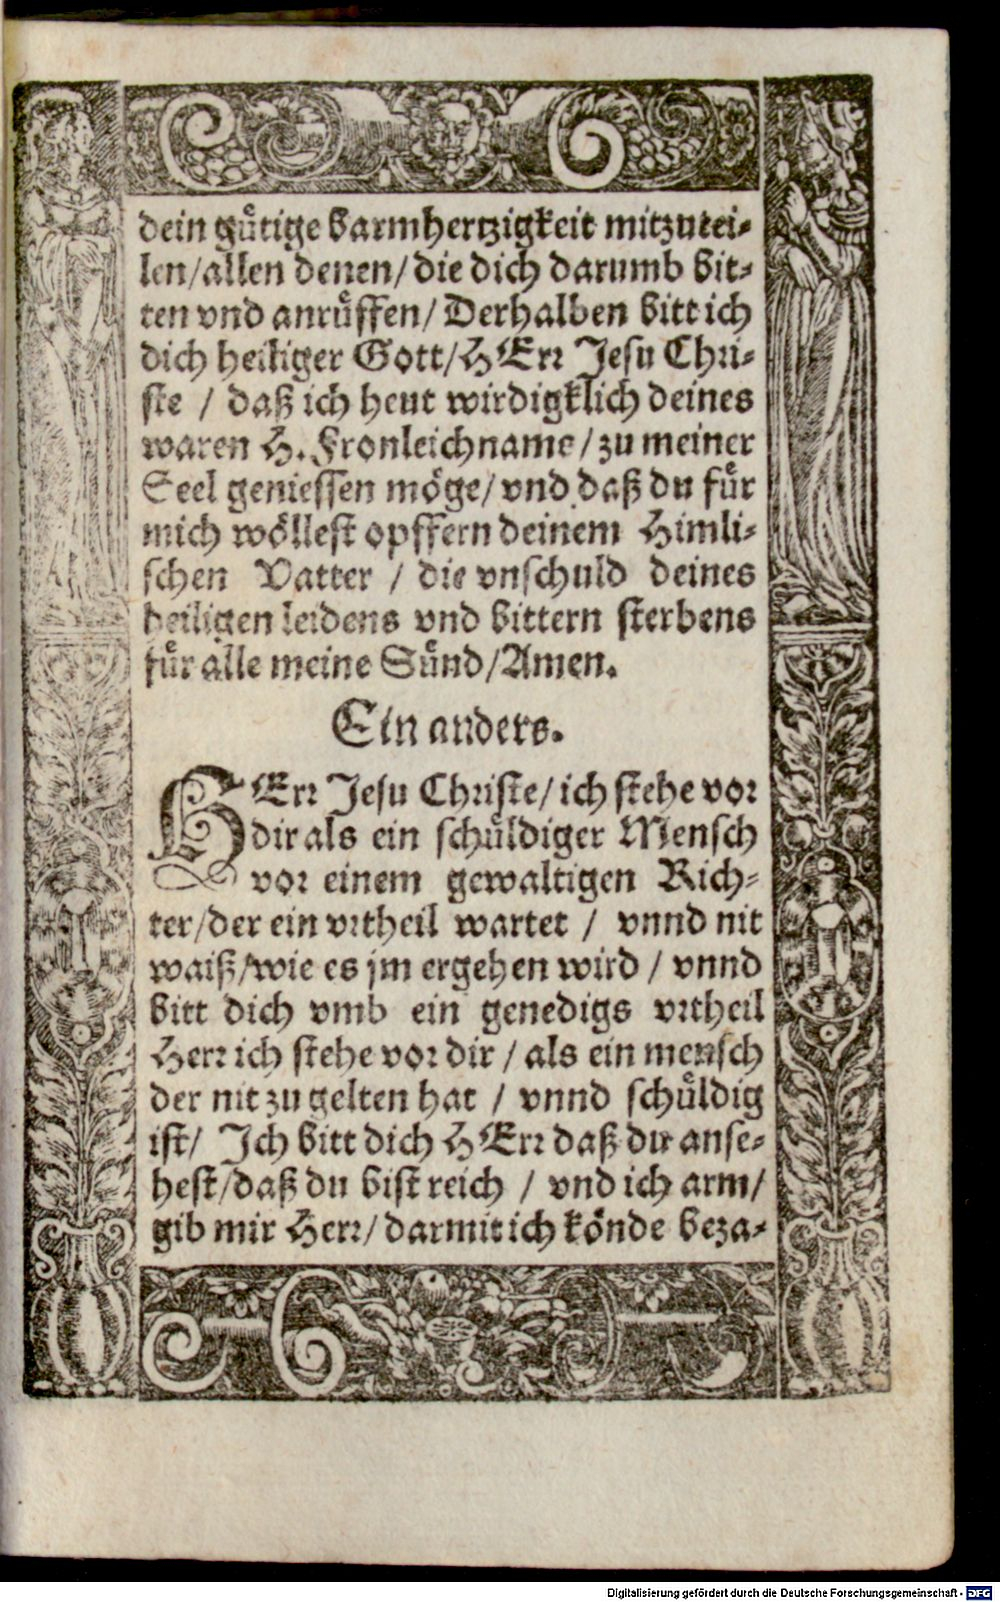 dein guͤtige barmhertzigkeit mitzutei-
len/allen denen/die dich darumb bit-
ten vnd anruͤffen/ Derhalben bitt ich
dich heiliger Gott/HErr Jesu Chri-
ste / daß ich heut wirdigklich deines
waren H. Fronleichnams/zu meiner
Seel geniessen moͤge/vnd daß du fuͤr
mich woͤllest opffern deinem Himli-
schen Vatter / die vnschuld deines
heiligen leidens vnd bittern sterbens
fuͤr alle meine Suͤnd/Amen.
Ein anders.
HErr Jesu Christe/ich stehe vor
dir als ein schuͤldiger Mensch
vor einem gewaltigen Rich-
ter/der ein vrtheil wartet / vnnd nit
waiß/wie es jm ergehen wird / vnnd
bitt dich vmb ein genedigs vrtheil
Herr ich stehe vor dir / als ein mensch
der nit zu gelten hat / vnnd schuͤldig
ist/ Ich bitt dich HErr daß du anse-
hest/daß du bist reich / vnd ich arm/
gib mir Herr/darmit ich koͤnde beza-
Digitalisierung gefördert durch die Deutsche Forschungsgemeinschaft - DFG